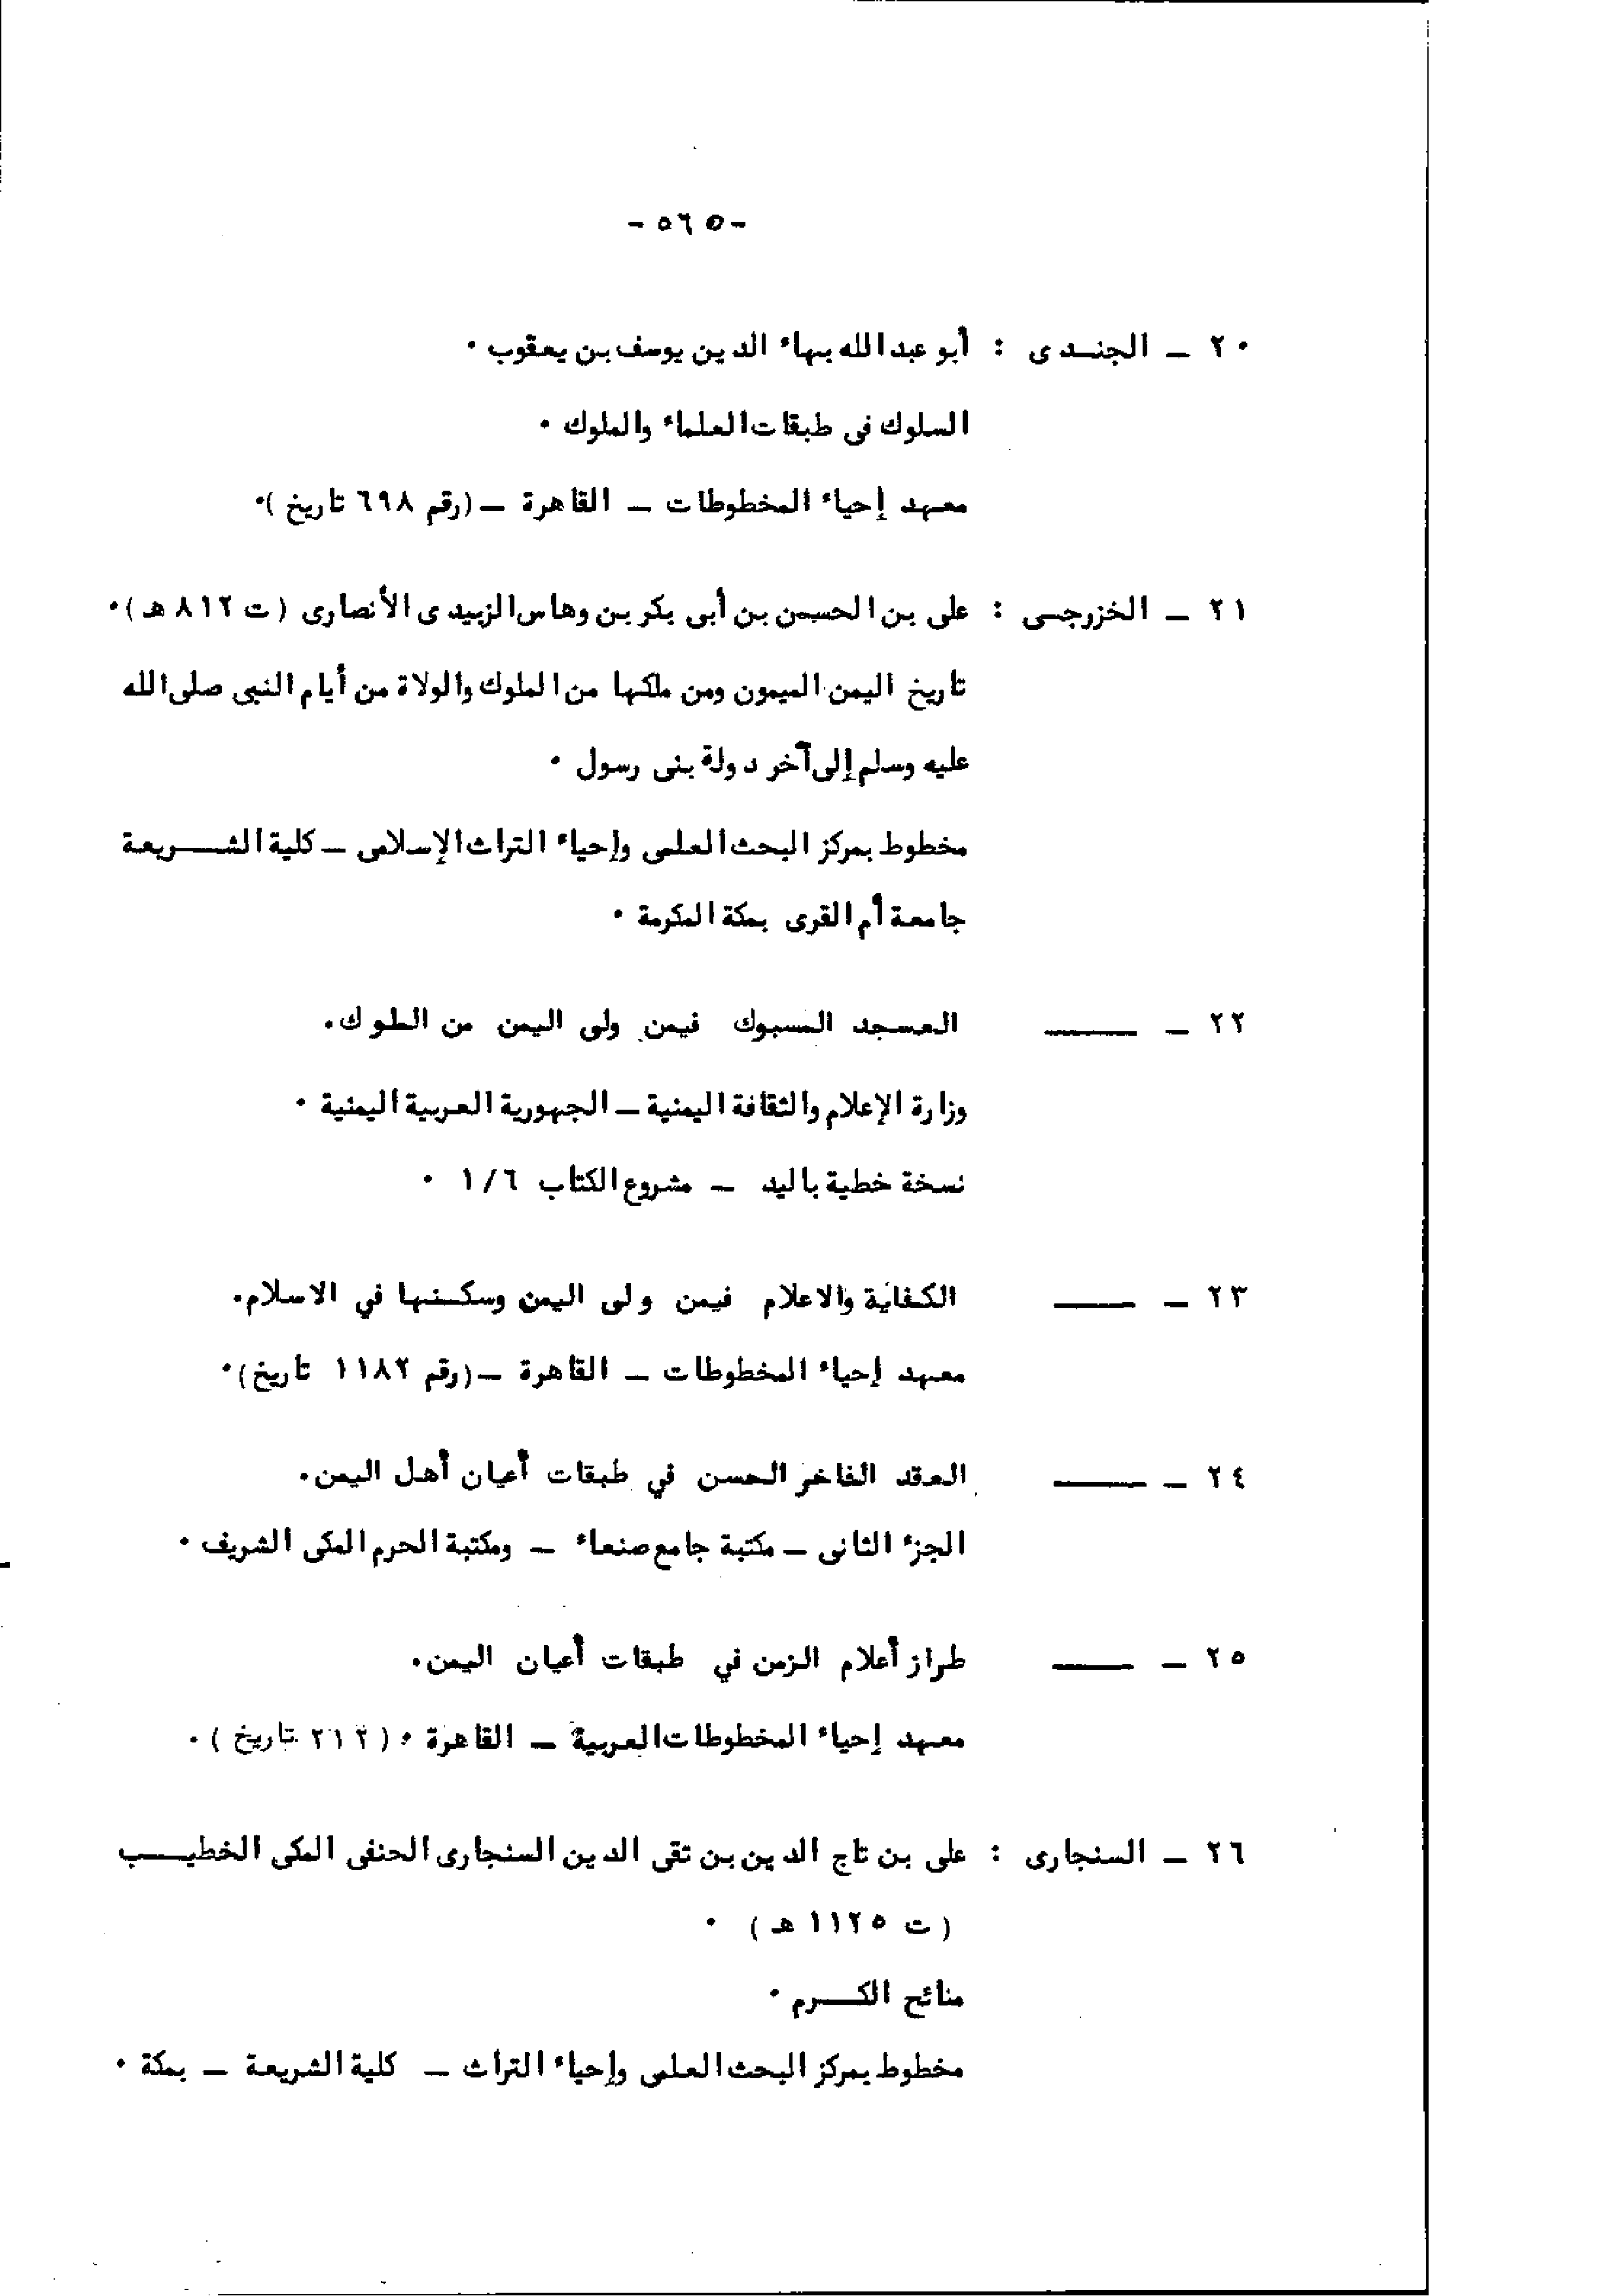 - ٥٦٥ -
٢٠ – الجنـدى : أبو عبد الله بهاء الدين يوسف بن يعقوب ٠
السلوك فى طبقات العلماء والملوك ٠
معهد إحياء المخطوطات – القاهرة – (رقم ٦٩٨ تاريخ )٠
٢١ – الخزرجـى : على بن الحسين بن أبى بكر بن وهاس الزبيدى الأنصارى ( ت ٨١٢ هـ )٠
تاريخ اليمن الميمون ومن ملكها من الملوك والولاة من أيام النبى صلى الله
عليه وسلم إلى آخر دولة بنى رسول ٠
مخطوط بمركز البحث العلمى وإحياء التراث الإسلامى – كلية الشــريعة
جامعة أم القرى بمكة المكرمة ٠
٢٢ – ــــــ العسجد المسبوك فيمن ولى اليمن من الملوك.
وزارة الإعلام والثقافة اليمنية – الجمهورية العربية اليمنية ٠
نسخة خطية باليد – مشروع الكتاب ١/٦ ٠
٢٣ – ــــــ الكفاية والاعلام فيمن ولى اليمن وسكـنها في الاسلام.
معهد إحياء المخطوطات – القاهرة – (رقم ١١٨٢ تاريخ)٠
٢٤ – ــــــ العقد الفاخر الحسن في طبقات أعيان أهل اليمن.
الجزء الثانى – مكتبة جامع صنعاء – ومكتبة الحرم المكى الشريف ٠
٢٥ – ــــــ طراز أعلام الزمن في طبقات أعيان اليمن.
معهد إحياء المخطوطات العربية – القاهرة ٠ ( ٢١٢ تاريخ ) ٠
٢٦ – السنجارى : على بن تاج الدين بن تقى الدين السنجارى الحنفى المكى الخطيــب
( ت ١١٢٥ هـ ) ٠
منائح الكــرم ٠
مخطوط بمركز البحث العلمى وإحياء التراث – كلية الشريعة – بمكة ٠